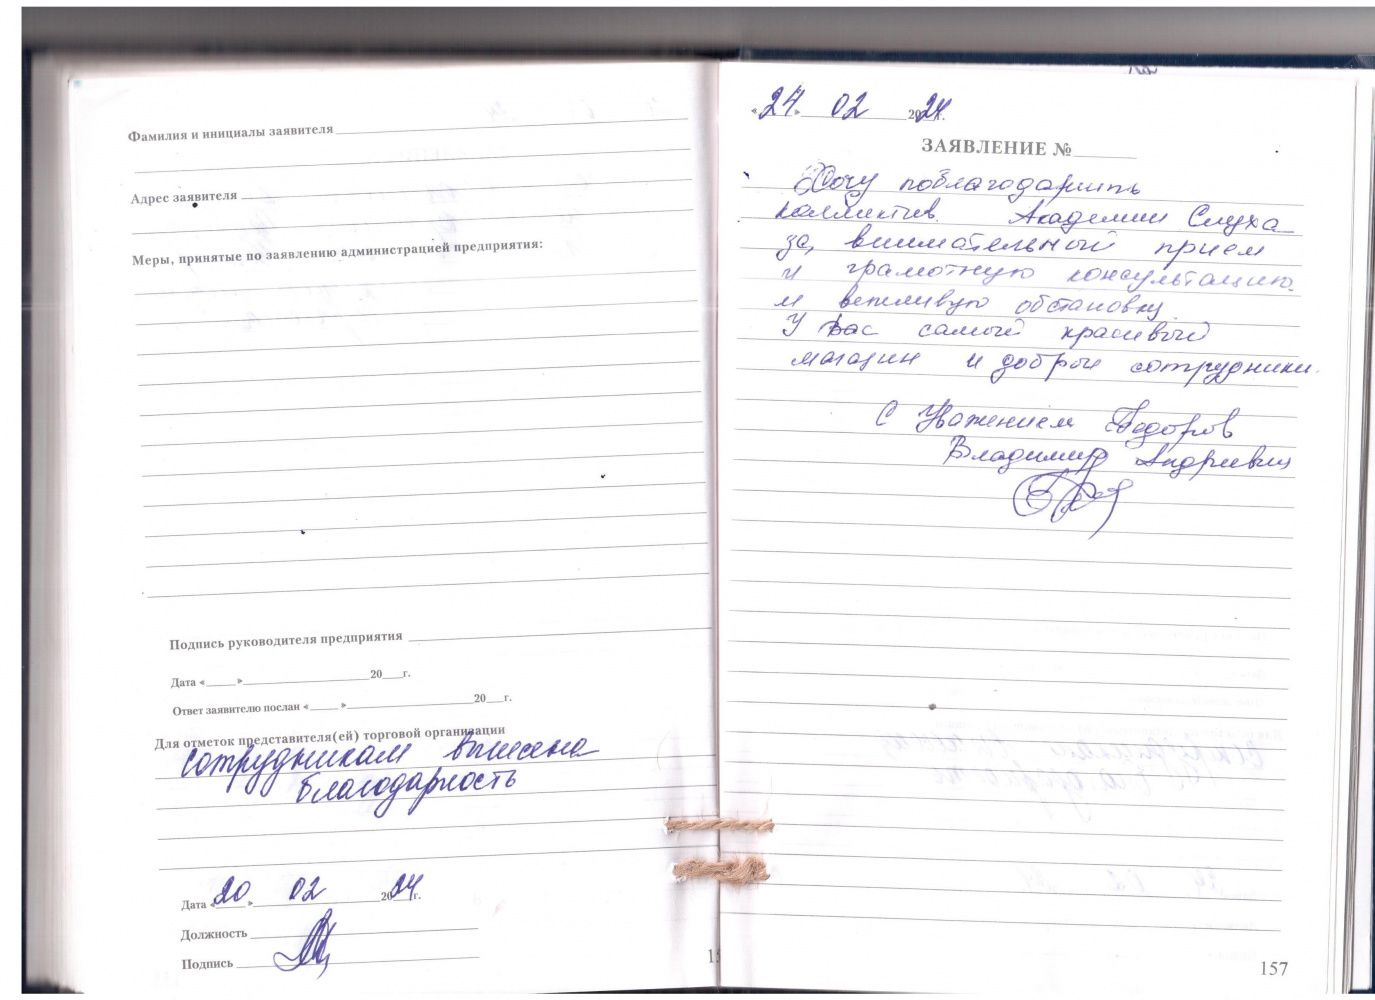 Фамилия и инициалы заявителя
Адрес заявителя
Меры, принятые по заявлению администрацией предприятия:
Подпись руководителя предприятия
Дата «____»____________20___г.
Ответ заявителю послан «____»____________20___г.
Для отметок представителя(ей) торговой организации
сотрудникам вынесена
благодарность
Дата «20» 02 2024г.
Должность
Подпись
«24» 02 2024г.
ЗАЯВЛЕНИЕ №
Хочу поблагодарить
коллектив Академии Слуха
за внимательный прием
и грамотную консультацию
и вежливую обстановку.
У вас самый красивый
магазин и добрые сотрудники.
С Уважением Федоров
Владимир Андриевич
157